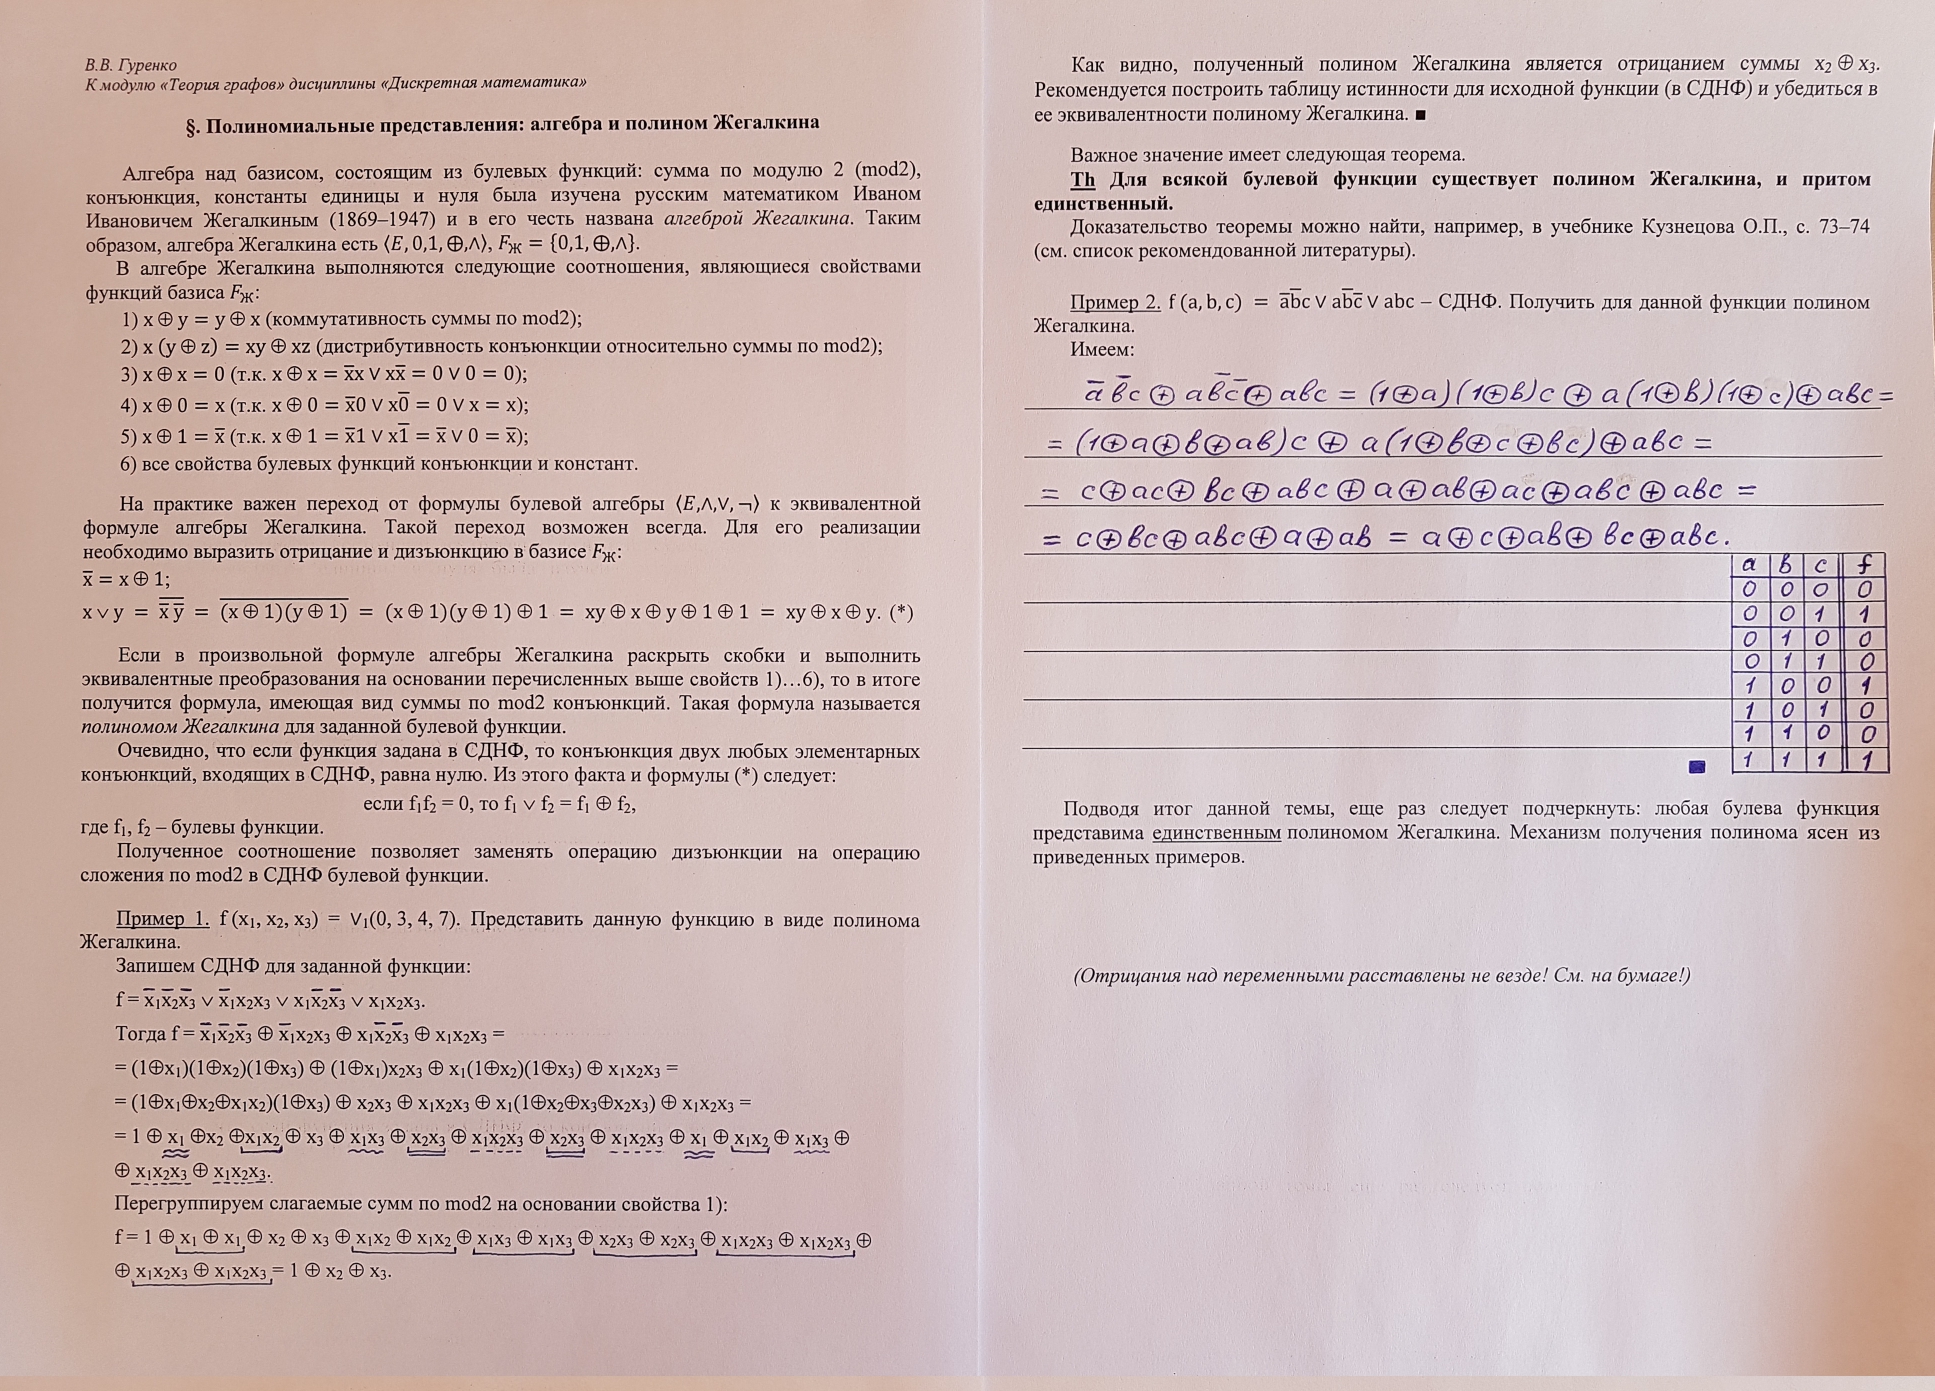 В.В. Гуренко
К модулю «Теория графов» дисциплины «Дискретная математика»
§. Полиномиальные представления: алгебра и полином Жегалкина
Алгебра над базисом, состоящим из булевых функций: сумма по модулю 2 (mod2),
конъюнкция, константы единицы и нуля была изучена русским математиком Иваном
Ивановичем Жегалкиным (1869–1947) и в его честь названа алгеброй Жегалкина. Таким
образом, алгебра Жегалкина есть ⟨E, 0,1, ⊕,∧⟩, Fж = {0,1, ⊕,∧}.
В алгебре Жегалкина выполняются следующие соотношения, являющиеся свойствами
функций базиса Fж:
1) x ⊕ y = y ⊕ x (коммутативность суммы по mod2);
2) x (y ⊕ z) = xy ⊕ xz (дистрибутивность конъюнкции относительно суммы по mod2);
3) x ⊕ x = 0 (т.к. x ⊕ x = x̅x ∨ xx̅ = 0 ∨ 0 = 0);
4) x ⊕ 0 = x (т.к. x ⊕ 0 = x̅0 ∨ x0̅ = 0 ∨ x = x);
5) x ⊕ 1 = x̅ (т.к. x ⊕ 1 = x̅1 ∨ x1̅ = x̅ ∨ 0 = x̅);
6) все свойства булевых функций конъюнкции и констант.
На практике важен переход от формулы булевой алгебры ⟨E,∧,∨, ¬⟩ к эквивалентной
формуле алгебры Жегалкина. Такой переход возможен всегда. Для его реализации
необходимо выразить отрицание и дизъюнкцию в базисе Fж:
x̅ = x ⊕ 1;
x ∨ y = x̿ ̅y̿ = (x̅ ̅⊕̅ ̅1̅)̅(̅y̅ ̅⊕̅ ̅1̅) = (x ⊕ 1)(y ⊕ 1) ⊕ 1 = xy ⊕ x ⊕ y ⊕ 1 ⊕ 1 = xy ⊕ x ⊕ y. (*)
Если в произвольной формуле алгебры Жегалкина раскрыть скобки и выполнить
эквивалентные преобразования на основании перечисленных выше свойств 1)…6), то в итоге
получится формула, имеющая вид суммы по mod2 конъюнкций. Такая формула называется
полиномом Жегалкина для заданной булевой функции.
Очевидно, что если функция задана в СДНФ, то конъюнкция двух любых элементарных
конъюнкций, входящих в СДНФ, равна нулю. Из этого факта и формулы (*) следует:
если f₁f₂ = 0, то f₁ ∨ f₂ = f₁ ⊕ f₂,
где f₁, f₂ – булевы функции.
Полученное соотношение позволяет заменять операцию дизъюнкции на операцию
сложения по mod2 в СДНФ булевой функции.
Пример 1. f (x₁, x₂, x₃) = ∨₁(0, 3, 4, 7). Представить данную функцию в виде полинома
Жегалкина.
Запишем СДНФ для заданной функции:
f = x̅₁x̅₂x̅₃ ∨ x̅₁x₂x₃ ∨ x₁x̅₂x̅₃ ∨ x₁x₂x₃.
Тогда f = x̅₁x̅₂x̅₃ ⊕ x̅₁x₂x₃ ⊕ x₁x̅₂x̅₃ ⊕ x₁x₂x₃ =
= (1⊕x₁)(1⊕x₂)(1⊕x₃) ⊕ (1⊕x₁)x₂x₃ ⊕ x₁(1⊕x₂)(1⊕x₃) ⊕ x₁x₂x₃ =
= (1⊕x₁⊕x₂⊕x₁x₂)(1⊕x₃) ⊕ x₂x₃ ⊕ x₁x₂x₃ ⊕ x₁(1⊕x₂⊕x₃⊕x₂x₃) ⊕ x₁x₂x₃ =
= 1 ⊕ x₁ ⊕x₂ ⊕x₁x₂ ⊕ x₃ ⊕ x₁x₃ ⊕ x₂x₃ ⊕ x₁x₂x₃ ⊕ x₂x₃ ⊕ x₁x₂x₃ ⊕ x₁ ⊕ x₁x₂ ⊕ x₁x₃ ⊕
⊕ x₁x₂x₃ ⊕ x₁x₂x₃.
Перегруппируем слагаемые сумм по mod2 на основании свойства 1):
f = 1 ⊕ x₁ ⊕ x₁ ⊕ x₂ ⊕ x₃ ⊕ x₁x₂ ⊕ x₁x₂ ⊕ x₁x₃ ⊕ x₁x₃ ⊕ x₂x₃ ⊕ x₂x₃ ⊕ x₁x₂x₃ ⊕ x₁x₂x₃ ⊕
⊕ x₁x₂x₃ ⊕ x₁x₂x₃ = 1 ⊕ x₂ ⊕ x₃.
Как видно, полученный полином Жегалкина является отрицанием суммы x₂ ⊕ x₃.
Рекомендуется построить таблицу истинности для исходной функции (в СДНФ) и убедиться в
ее эквивалентности полиному Жегалкина. ■
Важное значение имеет следующая теорема.
Th Для всякой булевой функции существует полином Жегалкина, и притом
единственный.
Доказательство теоремы можно найти, например, в учебнике Кузнецова О.П., с. 73–74
(см. список рекомендованной литературы).
Пример 2. f (a, b, c) = a̅b̅c ∨ ab̅c̅ ∨ abc – СДНФ. Получить для данной функции полином
Жегалкина.
Имеем:
a̅b̅c ⊕ ab̅c̅ ⊕ abc = (1⊕a)(1⊕b)c ⊕ a(1⊕b)(1⊕c)⊕ abc =
= (1⊕a⊕b⊕ab)c ⊕ a(1⊕b⊕c⊕bc)⊕abc =
= c⊕ac⊕bc⊕abc⊕a⊕ab⊕ac⊕abc⊕abc =
= c⊕bc⊕abc⊕a⊕ab = a⊕c⊕ab⊕bc⊕abc.
a b c f
0 0 0 0
0 0 1 1
0 1 0 0
0 1 1 0
1 0 0 1
1 0 1 0
1 1 0 0
1 1 1 1
Подводя итог данной темы, еще раз следует подчеркнуть: любая булева функция
представима единственным полиномом Жегалкина. Механизм получения полинома ясен из
приведенных примеров.
(Отрицания над переменными расставлены не везде! См. на бумаге!)